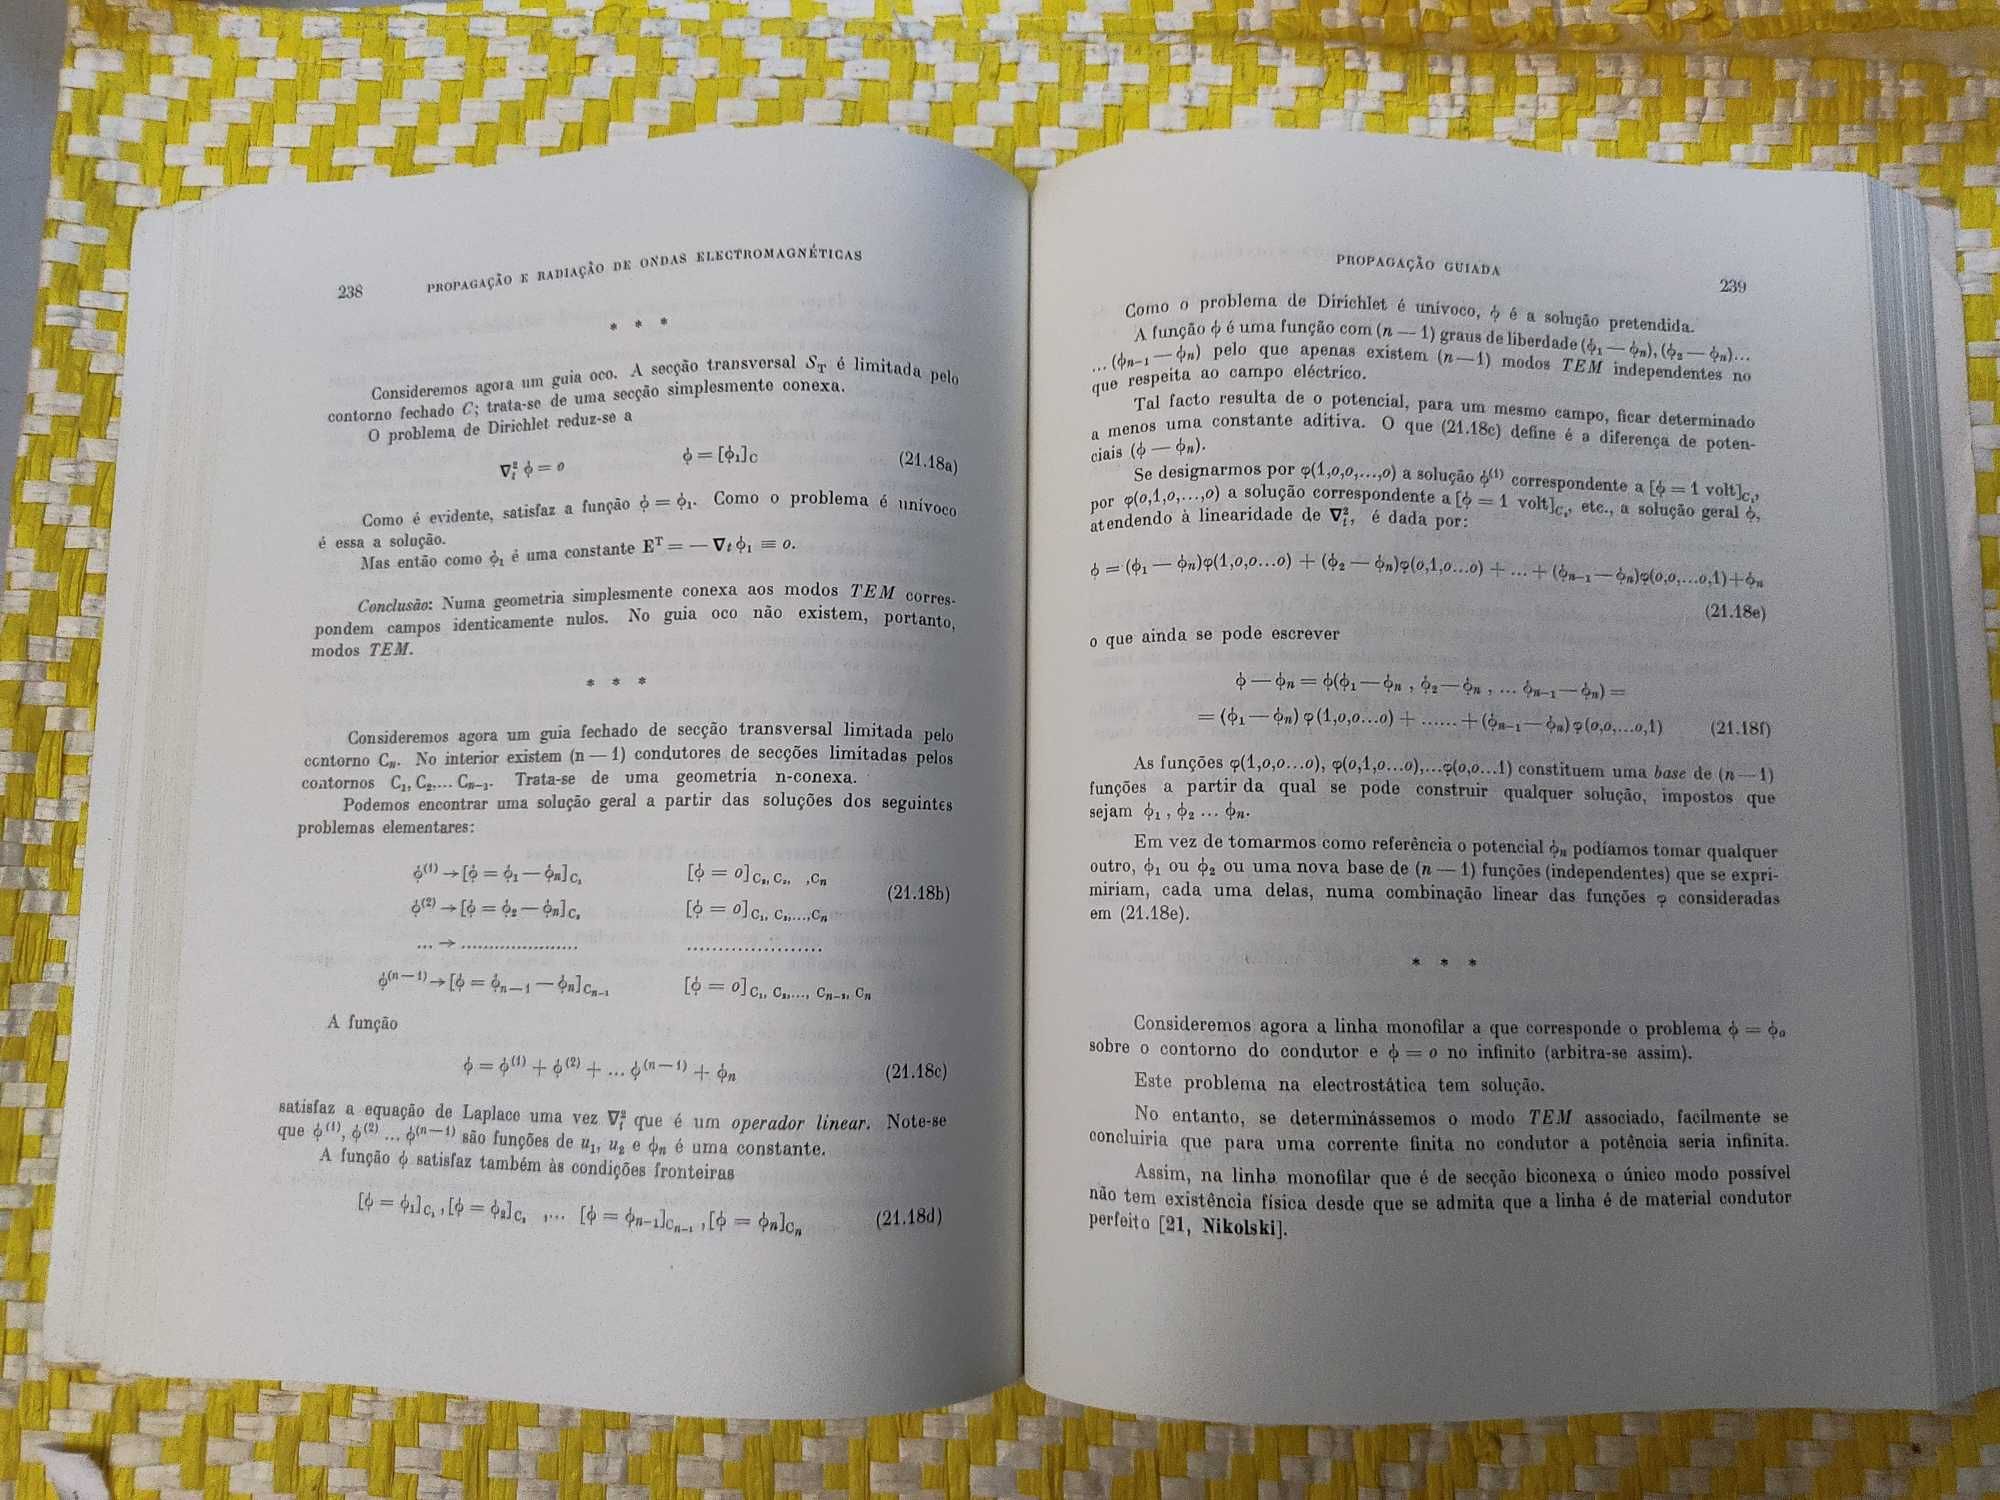 238 PROPAGAÇÃO E RADIAÇÃO DE ONDAS ELECTROMAGNÉTICAS
* * *
Consideremos agora um guia oco. A secção transversal S_T é limitada pelo
contorno fechado C; trata-se de uma secção simplesmente conexa.
O problema de Dirichlet reduz-se a
∇²_t ϕ = o ϕ = [ϕ₁]_C (21.18a)
Como é evidente, satisfaz a função ϕ = ϕ₁. Como o problema é unívoco
é essa a solução.
Mas então como ϕ₁ é uma constante E^T = — ∇_t ϕ₁ ≡ o.
Conclusão: Numa geometria simplesmente conexa aos modos TEM corres-
pondem campos identicamente nulos. No guia oco não existem, portanto,
modos TEM.
* * *
Consideremos agora um guia fechado de secção transversal limitada pelo
contorno C_n. No interior existem (n — 1) condutores de secções limitadas pelos
contornos C₁, C₂,... C_{n-1}. Trata-se de uma geometria n-conexa.
Podemos encontrar uma solução geral a partir das soluções dos seguintes
problemas elementares:
ϕ^(1) → [ϕ = ϕ₁ — ϕ_n]_{C₁} [ϕ = o]_{C₂, C₃, ,C_n}
(21.18b)
ϕ^(2) → [ϕ = ϕ₂ — ϕ_n]_{C₂} [ϕ = o]_{C₁, C₃,...,C_n}
... → ...................... ......................
ϕ^(n—1) → [ϕ = ϕ_{n—1} — ϕ_n]_{C_{n-1}} [ϕ = o]_{C₁, C₂,..., C_{n-2}, C_n}
A função
ϕ = ϕ^(1) + ϕ^(2) + ... ϕ^(n—1) + ϕ_n (21.18c)
satisfaz a equação de Laplace uma vez ∇²_t que é um operador linear. Note-se
que ϕ^(1), ϕ^(2) ... ϕ^(n—1) são funções de u₁, u₂ e ϕ_n é uma constante.
A função ϕ satisfaz também às condições fronteiras
[ϕ = ϕ₁]_{C₁} , [ϕ = ϕ₂]_{C₂} ,... [ϕ = ϕ_{n-1}]_{C_{n-1}} , [ϕ = ϕ_n]_{C_n} (21.18d)
PROPAGAÇÃO GUIADA 239
Como o problema de Dirichlet é unívoco, ϕ é a solução pretendida.
A função ϕ é uma função com (n — 1) graus de liberdade (ϕ₁ — ϕ_n), (ϕ₂ — ϕ_n)...
... (ϕ_{n-1} — ϕ_n) pelo que apenas existem (n—1) modos TEM independentes no
que respeita ao campo eléctrico.
Tal facto resulta de o potencial, para um mesmo campo, ficar determinado
a menos uma constante aditiva. O que (21.18c) define é a diferença de poten-
ciais (ϕ — ϕ_n).
Se designarmos por φ(1,o,o,...,o) a solução ϕ^(1) correspondente a [ϕ = 1 volt]_{C₁},
por φ(o,1,o,...,o) a solução correspondente a [ϕ = 1 volt]_{C₂}, etc., a solução geral ϕ,
atendendo à linearidade de ∇²_t, é dada por:
ϕ = (ϕ₁ — ϕ_n)φ(1,o,o...o) + (ϕ₂ — ϕ_n)φ(o,1,o...o) + ... + (ϕ_{n-1} — ϕ_n)φ(o,o,...o,1)+ϕ_n
(21.18e)
o que ainda se pode escrever
ϕ — ϕ_n = ϕ(ϕ₁ — ϕ_n , ϕ₂—ϕ_n , ... ϕ_{n-1} — ϕ_n) =
= (ϕ₁ — ϕ_n) φ (1,o,o...o) + ...... + (ϕ_{n-1} — ϕ_n) φ (o,o,...o,1) (21.18f)
As funções φ(1,o,o...o), φ(o,1,o...o),...φ(o,o...1) constituem uma base de (n—1)
funções a partir da qual se pode construir qualquer solução, impostos que
sejam ϕ₁ , ϕ₂ ... ϕ_n.
Em vez de tomarmos como referência o potencial ϕ_n podíamos tomar qualquer
outro, ϕ₁ ou ϕ₂ ou uma nova base de (n — 1) funções (independentes) que se expri-
miriam, cada uma delas, numa combinação linear das funções φ consideradas
em (21.18e).
* * *
Consideremos agora a linha monofilar a que corresponde o problema ϕ = ϕ_o
sobre o contorno do condutor e ϕ = o no infinito (arbitra-se assim).
Este problema na electrostática tem solução.
No entanto, se determinássemos o modo TEM associado, facilmente se
concluiria que para uma corrente finita no condutor a potência seria infinita.
Assim, na linha monofilar que é de secção biconexa o único modo possível
não tem existência física desde que se admita que a linha é de material condutor
perfeito [21, Nikolski].